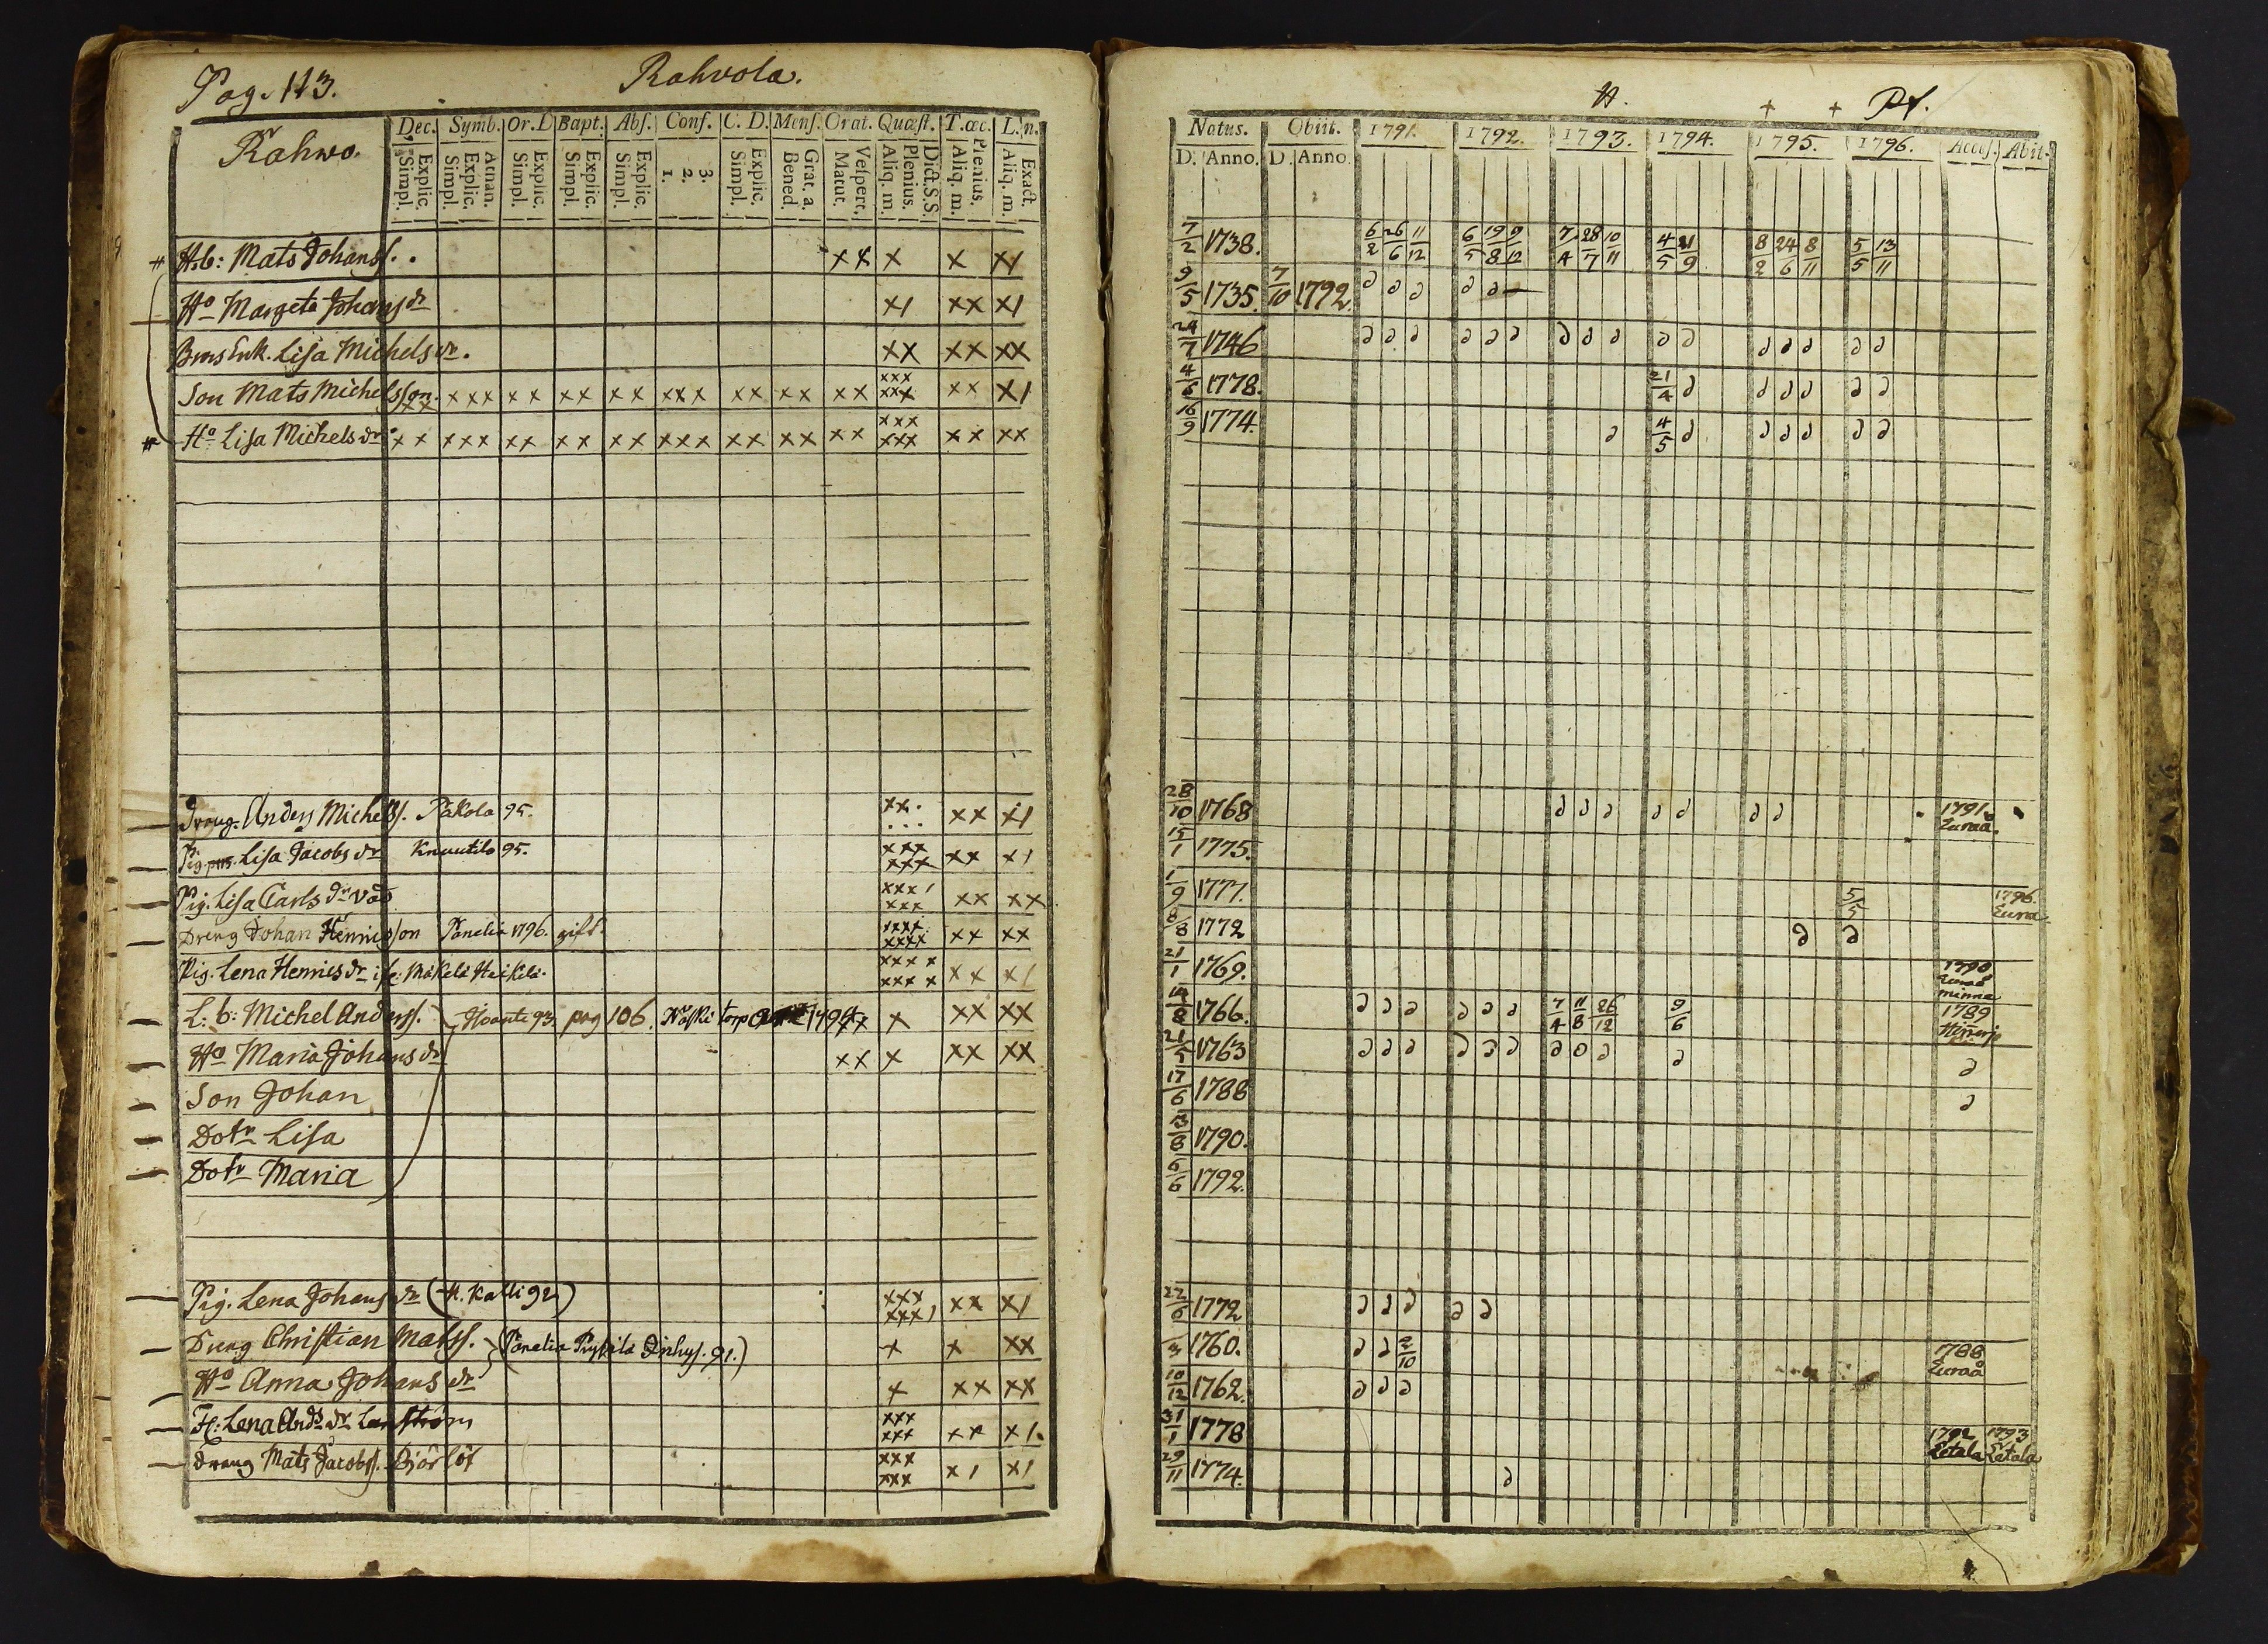 Pag. 113.
Rahvola.
Rahwo.
Dec. Symb. Or. D Bapt. Abs. Conf. C. D. Mens. Orat. Quæst. T. œc. L. n.
Explic. Simpl.
Athan. Explic. Simpl.
Explic. Simpl.
Explic. Simpl.
Explic. Simpl.
3. 2. 1.
Explic. Simpl.
Grat. a. Bened.
Vespert. Matut.
Dict. S.S. Plenius. Aliq. m.
Plenius. Aliq. m.
Exact. Aliq. m.
H.b: Mats Johanss. xx x x x/
Ho Margeta Johansdr x/ xx x/
Enk. Lisa Michelsdr. xx xx xx
Son Mats Michelsson. xx xxx xx xx xx xxx xx xx xx xxx xxx xx x/
Ho Lisa Michelsdr xx xxx xx xx xx xxx xx xx xx xxx xxx xx xx
Dreng. Anders Michelss. Päkola 95. xx. ... xx x/
Pig. Lisa Jacobsdr Knuutila 95. xxx xxx xx x/
Pig. Lisa Carlsdr xxx/ xxx xx xx
Dreng Johan Hennicsson Panelia 1796. gift xxxx xxxx xx xx
Pig. Lena Hennicsdr Mäkelä Heikilä. xxxx xxxx xx x/
L: b: Michel Anderss. 93. pag 106. torp 1794 xx x xx xx
Ho Maria Johansdr xx x xx xx
Son Johan
Dotr Lisa
Dotr Maria
Pig. Lena Johansdr (H. Kalli 92) xxx xxx/ xx x/
Dreng Christian Matss. (Panelia Inhys. 91.) x x xx
Ho Anna Johansdr x xx xx
Lena Andsdr xxx xxx xx x/.
Dreng Mats Jacobss. Björlöf xxx xxx x/ x/
Natus. Obiit. 1791. 1792. 1793. 1794. 1795. 1796. Access. Abit.
D. Anno. D. Anno.
7/2 1738. 6/2 26/6 11/12 6/5 19/8 9/12 7/4 28/7 10/11 4/5 21/9 8/2 24/6 8/11 5/5 13/11
9/5 1735. 7/10 1792.
24/7 1746
4/6 1778. 21/4
16/9 1774. 4/5
28/10 1768 1791. Euraå.
15/1 1775.
1/9 1777. 5/5 1796. Eura
8/8 1772
21/1 1769. 1790
14/8 1766. 7/4 11/8 26/12 9/6 1789
21/5 1763
17/6 1788
13/8 1790.
6/6 1792.
22/6 1772
3 1760. 2/10 1788 Euraå
10/12 1762.
31/1 1778 1792 Letala 1793 Letala
29/11 1774.